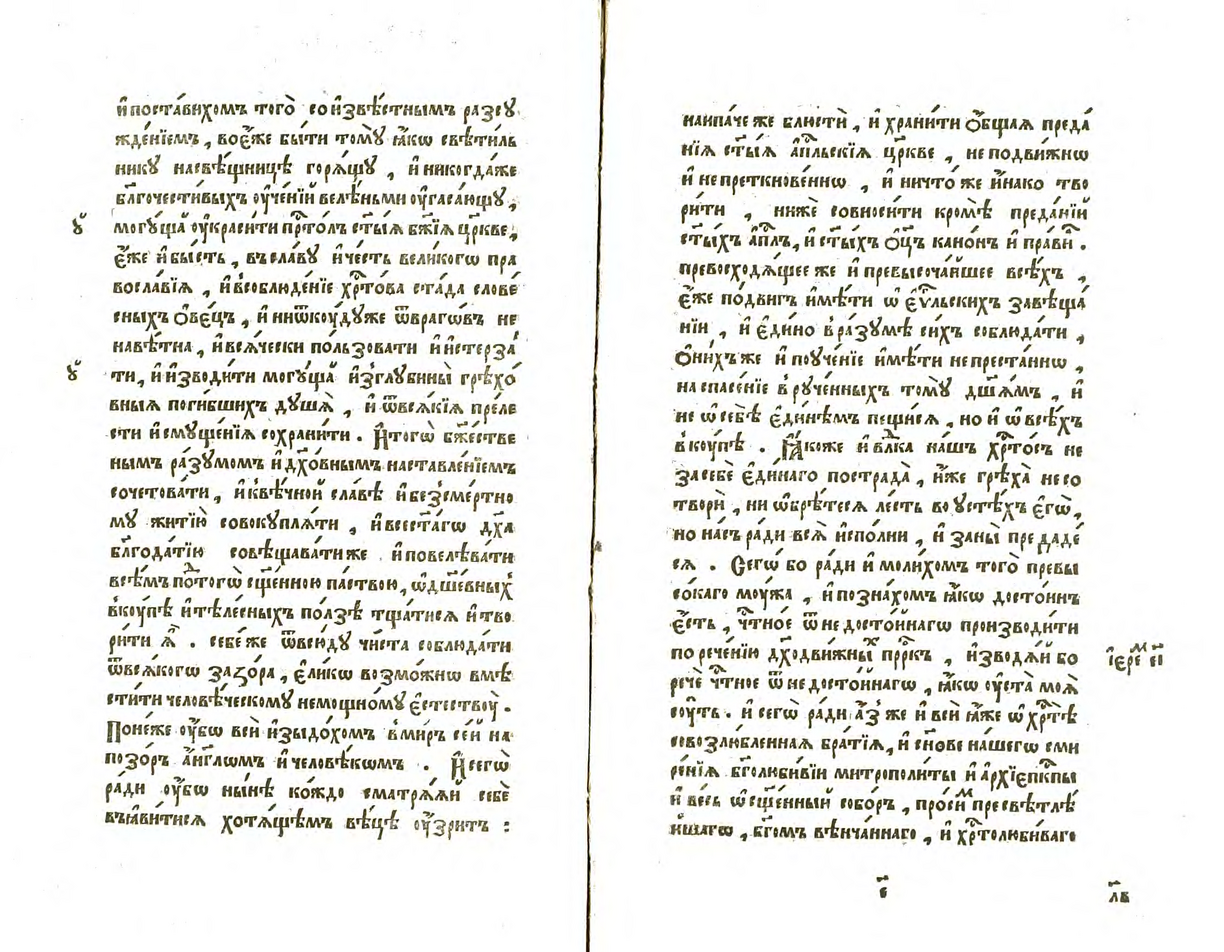 и҆поста́вихомъ того̀ сои҆звѣ́стнымъ разсꙋ
жде́нїемъ, воє҆́же бы́ти томꙋ̀ ꙗ҆́кѡ свѣти́ль
никꙋ насвѣ́щницѣ горѧ́щꙋ, и҆ никогда́же
бл҃гочести́выхъ ᲂу҆че́нїй велѣ́ньми ᲂу҆гаса́ющꙋ,
ꙋ҆̀
могꙋ́ща ᲂу҆краси́ти пр҇то́лъ ст҃ы́ѧ бж҃їѧ цр҃кве,
є҆́же и҆бы́сть, въсла́вꙋ и҆че́сть вели́кагѡ пра
восла́вїѧ, и҆всоблюде́нїе хр҇то́ва ста́да слове́
сныхъ ѻ҆ве́цъ, и҆ниѿкоу́дꙋже ѿврагѡ́въ не
навѣ́тна, и҆всѧ́чески по́льзовати и҆и҆стерза́
ꙋ҆̀
ти, и҆и҆зводи́ти могꙋ́ща и҆зглꙋбины̀ грѣхо́
вныѧ поги́бшихъ дꙋ́шѧ, и҆ ѿвсѧ́кїѧ пре́ле
сти и҆смꙋще́нїѧ сохрани́ти. И҆того̀ бж҃е́стве
нымъ ра́зꙋмомъ и҆дх҃о́внымъ наставле́нїемъ
сочетова́ти, и҆квѣ́чной сла́вѣ и҆безсме́ртно
мꙋ житїю̀ совокꙋплѧ́ти, и҆всест҃а́гѡ дх҃а
бл҃года́тїю совѣщава́тиже и҆повелѣва́ти
всѣ́мъ под̾того̀ сщ҃е́нною па́ствою, ѡ҆дш҃е́вных̾
вкоу́пѣ и҆тѣле́сныхъ по́лзѣ тща́тисѧ и҆тво
ри́ти ѧ҆̀. себе́же ѿвсю́дꙋ чи́ста соблюда́ти
ѿвсѧ́когѡ зазо́ра, є҆ли́кѡ возмо́жнѡ вмѣ
сти́ти человѣ́ческомꙋ немощно́мꙋ є҆стествоу̀.
Поне́же ᲂу҆́бѡ всѝ и҆зыдо́хомъ в̾ми́ръ се́й на
позо́ръ а҆́нг҃лѡмъ и҆человѣ́кѡмъ. И҆сегѡ̀
ра́ди ᲂу҆́бѡ ны́нѣ ко́ждо сматрѧ́ѧй себѐ
въꙗ҆ви́тисѧ хотѧ́щѣмъ вѣ́цѣ ᲂу҆́зритъ :
наипа́че же блюстѝ, и҆ храни́ти ѻ҆́бщаѧ преда́
нїѧ ст҃ы́ѧ а҆пⷭ҇льскїѧ цр҃кве, не подви́жнѡ
и҆ не преткнове́ннѡ, и҆ ничто́ же и҆́нако тво
ри́ти, нижѐ совноси́ти кромѣ̀ преда́нїй
ст҃ы́хъ а҆пⷭ҇лъ, и҆ ст҃ы́хъ ѻ҆ц҃ъ кано́нъ и҆ пра́ви.
превосходѧ́щее же и҆ превысоча́йшее всѣ́хъ,
є҆́же по́двигъ и҆мѣ́ти ѡ҆ є҆ѵⷢ҇льскихъ завѣща́
нїи, и҆ є҆ди́но в̾ра́зꙋмѣ си́хъ соблюда́ти,
ѻ҆ни́хъ же и҆ поꙋче́нїе и҆мѣ́ти непреста́ннѡ,
на спасе́нїе в̾рꙋче́нныхъ томꙋ̀ дш҃а́мъ, и҆
не ѡ҆ себѣ̀ є҆ди́нѣмъ пещи́сѧ, но и҆ ѡ҆ всѣ́хъ
в̾коу́пѣ. Ꙗ҆́коже и҆ влⷣка на́шъ хрⷭ҇то́съ не
за себѐ є҆ди́наго пострада̀, и҆́же грѣха̀ несо
творѝ, ни ѡ҆брѣ́тесѧ ле́сть во ᲂу҆стѣ́хъ є҆гѡ̀,
но на́съ ра́ди всѧ̀ и҆спо́лни, и҆ заны̀ пре даде́
сѧ. Сегѡ̀ бо ра́ди и҆ моли́хомъ того̀ превы
со́каго моу́жа, и҆ позна́хомъ ꙗ҆́кѡ досто́инъ
є҆́сть, чⷭ҇тно́е ѿ недосто́йнагѡ производи́ти
по рече́нїю дх҃одви́жны́х̾ прⷪ҇ро́къ, и҆зводѧ́й бо
і҆ере́м є҃і
речѐ чⷭ҇тно́е ѿ недосто́йнагѡ, ꙗ҆́кѡ ᲂу҆ста̀ моѧ̀
соу́ть. и҆ сегѡ̀ ра́ди а҆́з̾ же и҆ всѝ ꙗ҆̀же ѡ҆ хрⷭ҇тѣ̀
совозлю́бленнаѧ бра́тїѧ, и҆ сн҃ове на́шегѡ сми
ре́нїѧ бг҃олюби́вїи митрополи́ты и҆ а҆рхїепⷭ҇кпы
и҆ ве́сь ѡ҆сщ҃е́нный собо́ръ, про́сим̾ пресвѣтлѣ́
йшагѡ, бг҃омъ вѣнча́ннаго, и҆ хрⷭ҇толюби́ваго
є҃
л҃в